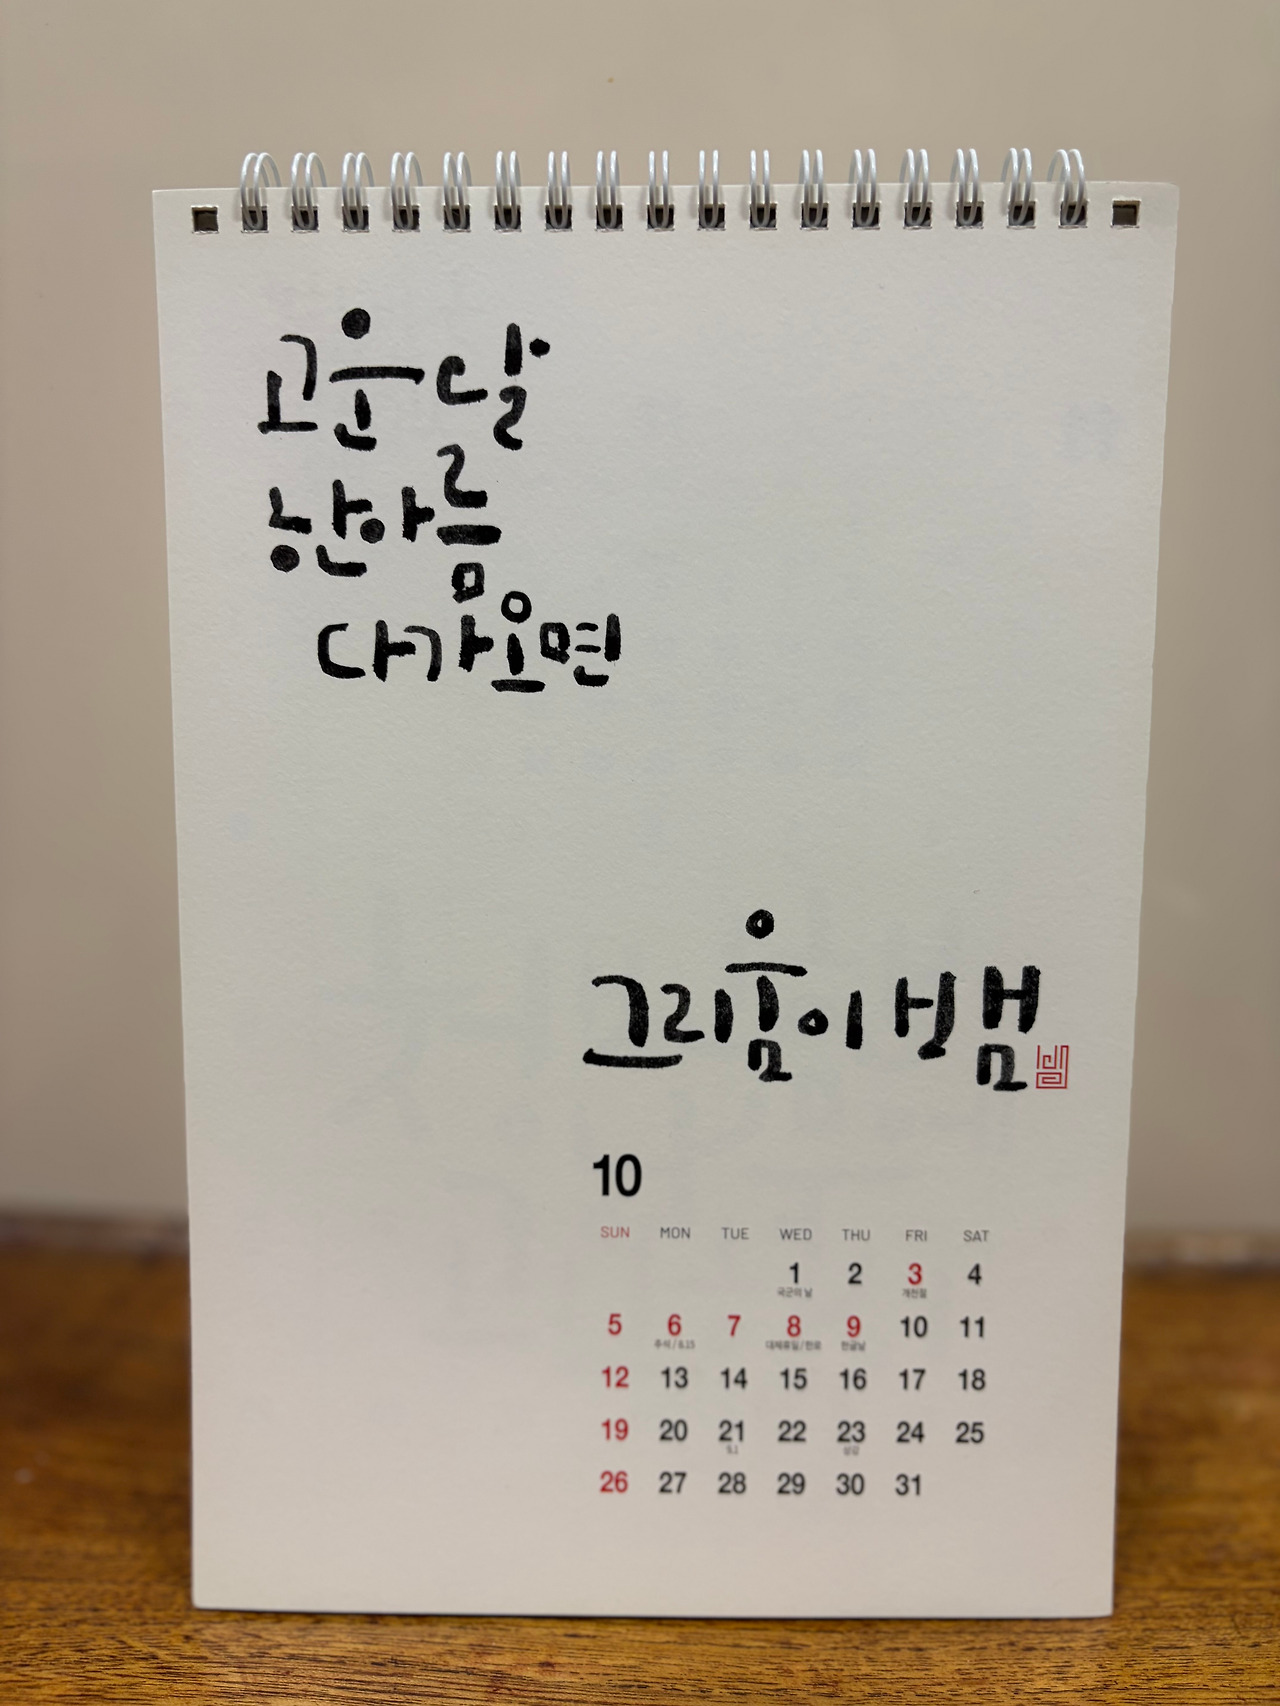 고운 달
한아름
다가오면
그리움이 넝뱀
10
SUN MON TUE WED THU FRI SAT
1 2 3 4
국군의 날 개천절
5 6 7 8 9 10 11
추석/8.15 대체휴일/한로 한글날
12 13 14 15 16 17 18
19 20 21 22 23 24 25
9.1 상강
26 27 28 29 30 31